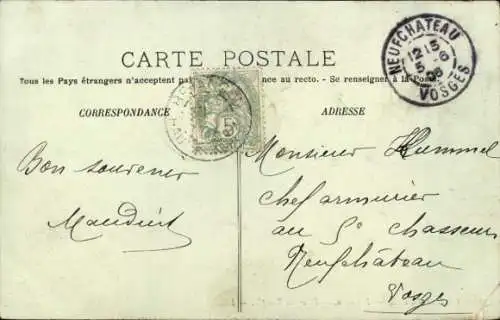 CARTE POSTALE
Tous les Pays étrangers n'acceptent pas ance au recto. - Se renseigner à la Poste.
CORRESPONDANCE
ADRESSE
NEUFCHATEAU
1215
5 -6
08
VOSGES
5
Bon souvenir
Maudint
Monsieur Hummel
chef armurier
au 5e chasseurs
Neufchâteau
Vosges